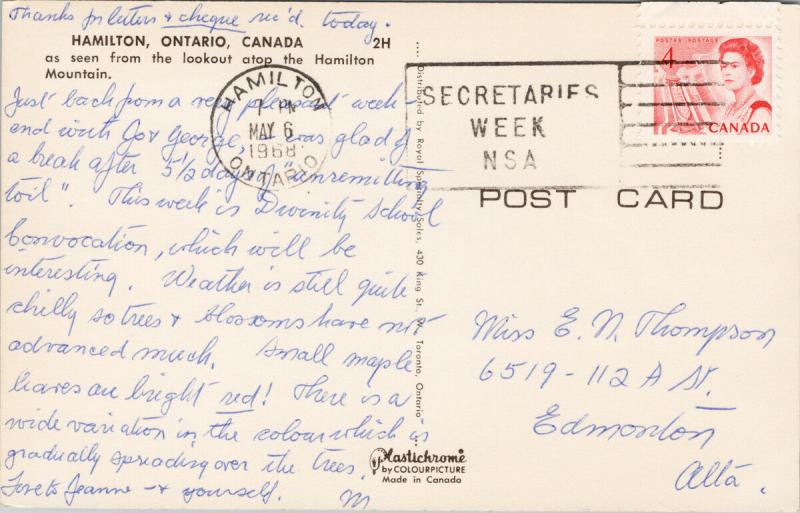 Thanks for letters & cheque rec'd. today.
HAMILTON, ONTARIO, CANADA 2H
as seen from the lookout atop the Hamilton
Mountain.
Just back from a very pleasant week
end with Jo & George. was glad of
a break after 5½ days "unremitting
toil". This week is Divinity School
Convocation, which will be
interesting. Weather is still quite
chilly so trees & blossoms have not
advanced much. Small maple
leaves are bright red! There is a
wide variation in the colour which is
gradually spreading over the trees.
Love to Jeanne & yourself. M
HAMILTON
PM
MAY 6
1968
ONTARIO
SECRETARIES
WEEK
NSA
POSTES POSTAGE
4
CANADA
POST CARD
Distributed by Royal Specialty Sales, 430 King St. W., Toronto, Ontario
Miss E. N. Thompson
6519-112 A St.
Edmonton
Alta.
Plastichrome
by COLOURPICTURE
Made in Canada